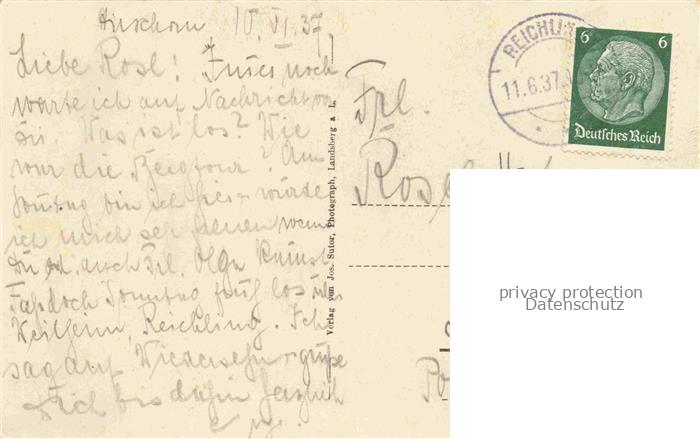 10. VI. 37.
Liebe Rosl! Immer noch
warte ich auf Nachricht von
Dir. Was ist los? Wie
war die Bergtour? Am
Sonntag bin ich frei würde
ich mich sehr freuen wenn
Du od. auch Frl. Olga kämst
Fahr doch Sonntag früh los über
Weilheim, Reichling. Ich
sag auf Wiedersehn grüße
Dich bis dahin herzlich
Verlag von Jos. Sutor, Photograph, Landsberg a. L.
REICHLI
11.6.37
6 6
Deutsches Reich
Frl.
Rosl
privacy protection
Datenschutz